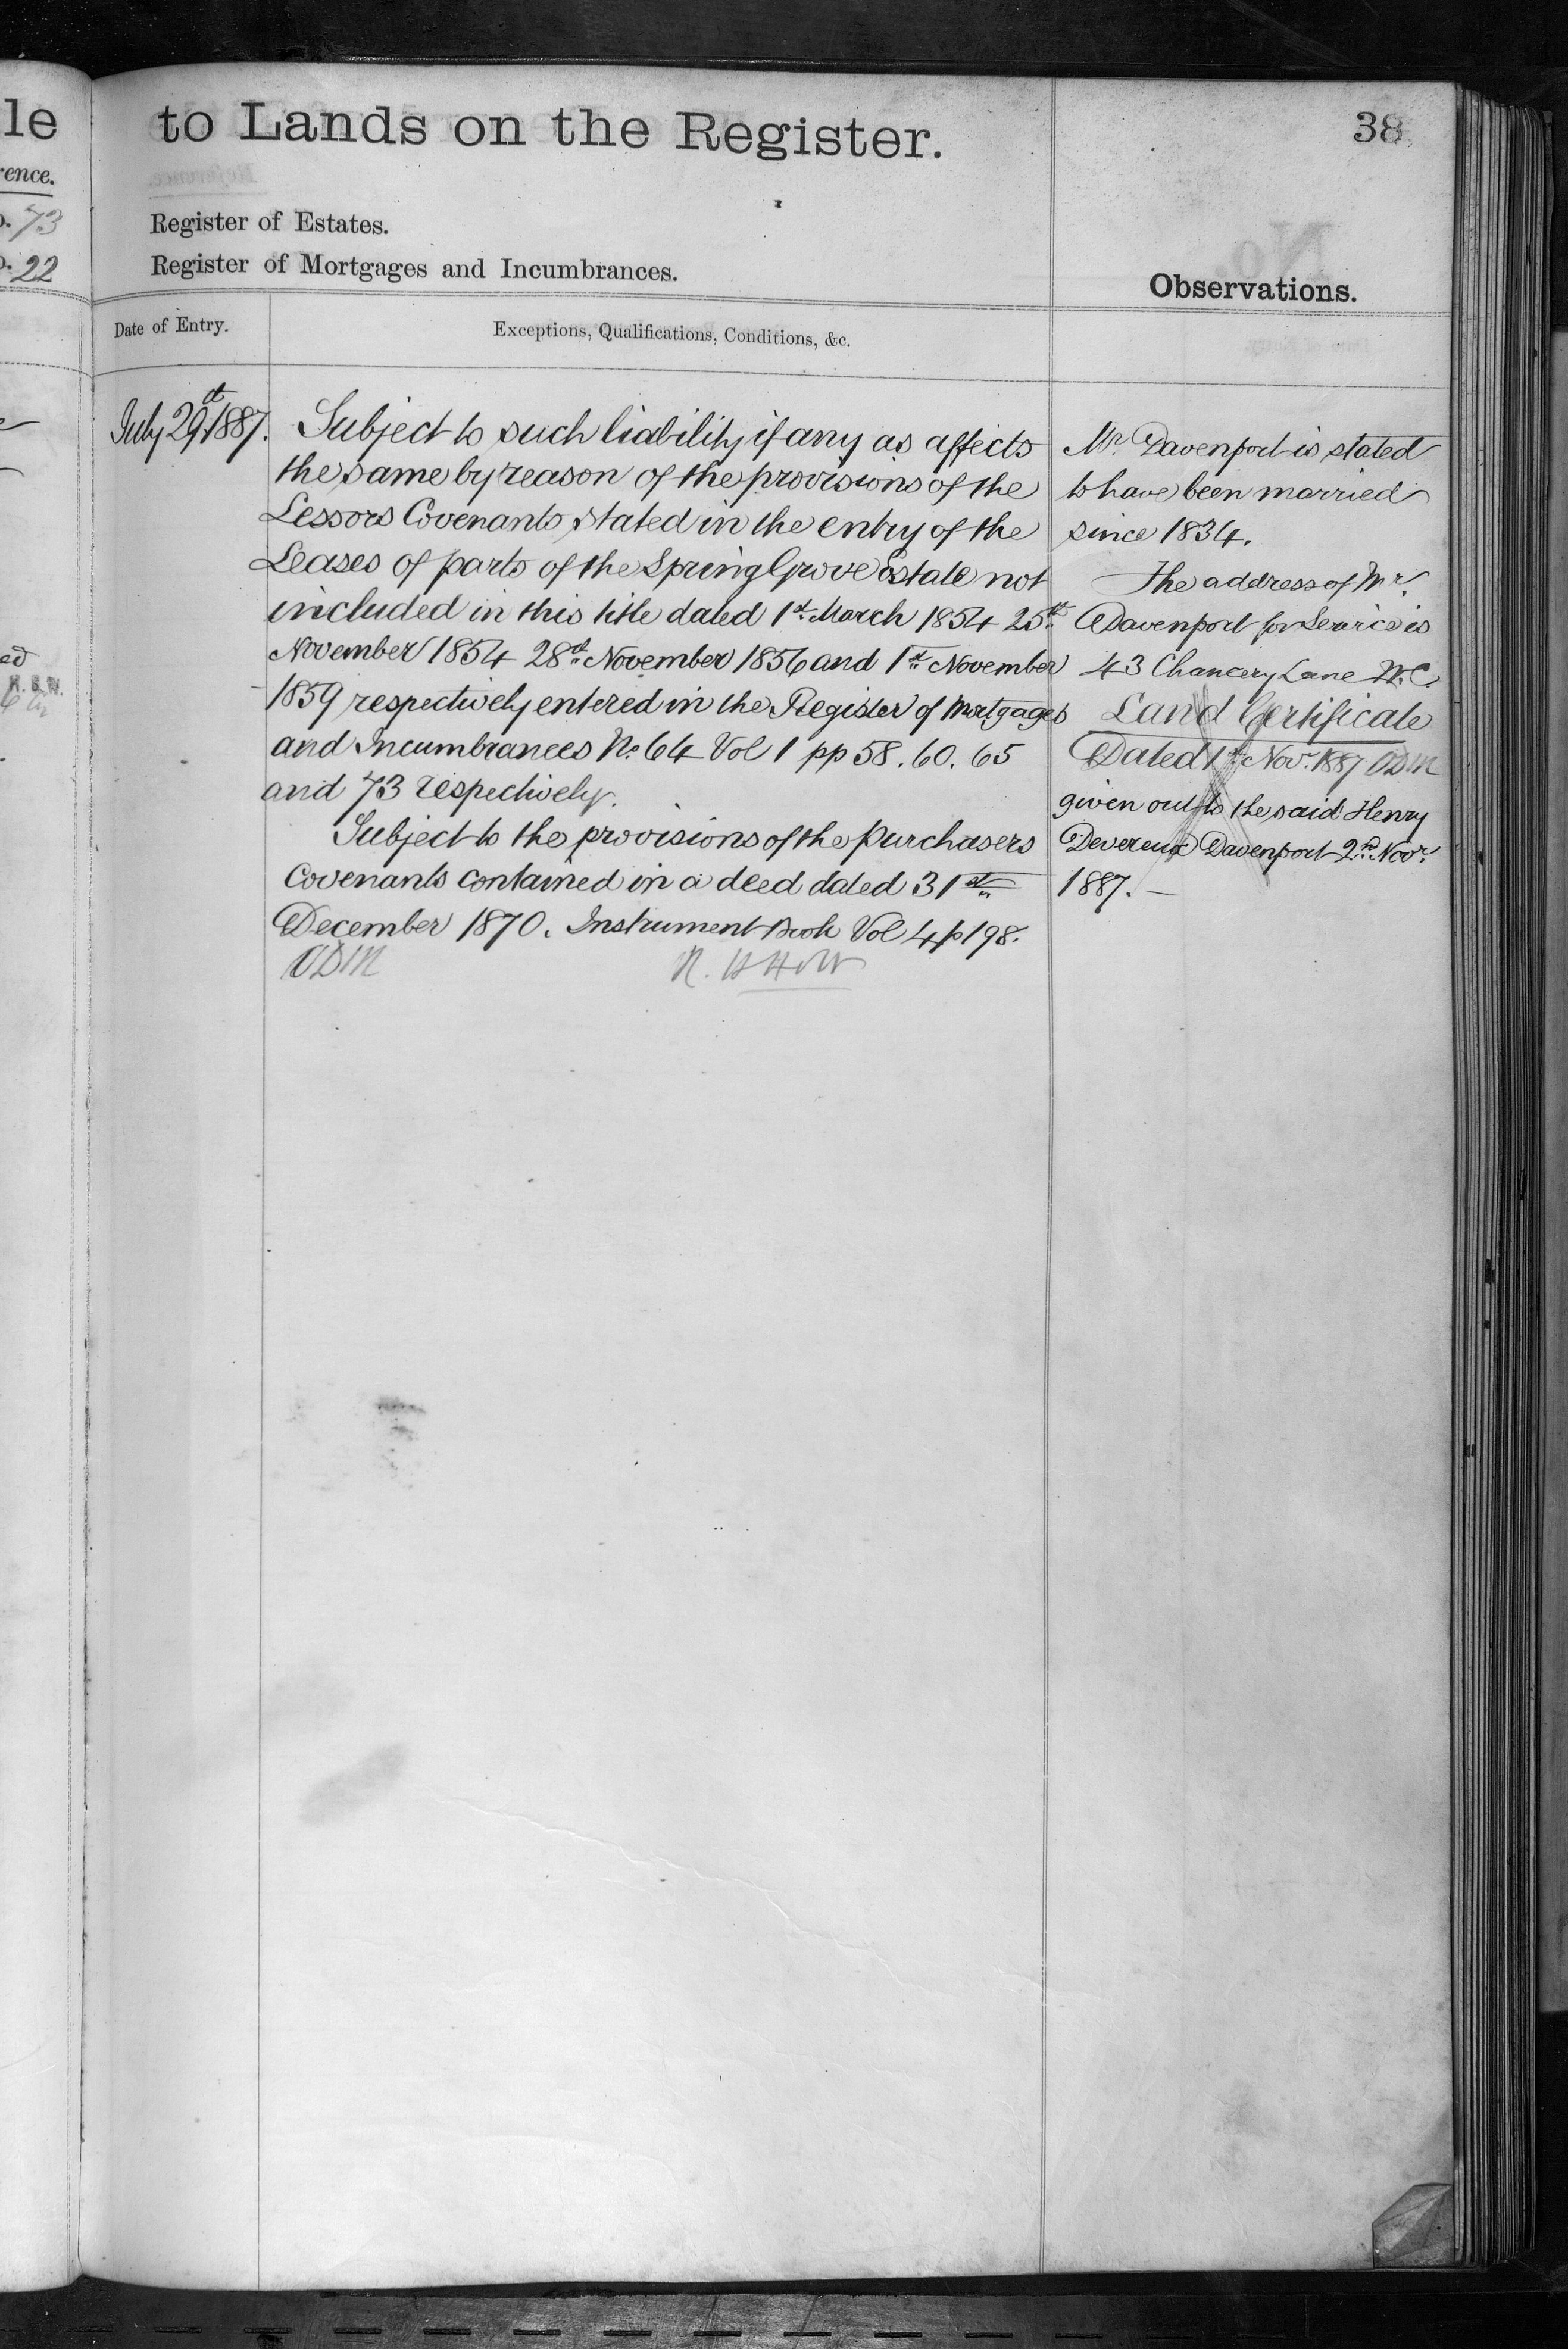 le
to Lands on the Register.
38
rence.
73
22
Register of Estates.
Register of Mortgages and Incumbrances.
Observations.
Date of Entry.
Exceptions, Qualifications, Conditions, &c.
July 29th 1887.
Subject to such liability if any as affects
the same by reason of the provisions of the
Lessors Covenants stated in the entry of the
Leases of parts of the Spring Grove Estate not
included in this title dated 1st March 1854 25th
November 1854 28th November 1856 and 1st November
1859 respectively entered in the Register of Mortgages
and Incumbrances No. 64 Vol 1 pp 58. 60. 65
and 73 respectively.
Subject to the provisions of the purchasers
Covenants contained in a deed dated 31st
December 1870. Instrument Book Vol 4 p 198.
R. H Holt
Mr. Davenport is stated
to have been married
since 1834.
The address of Mr.
Davenport for Service is
43 Chancery Lane W.C.
Land Certificate
Dated 1st Novr. 1887
given out to the said Henry
Devereux Davenport 2nd Novr.
1887. —